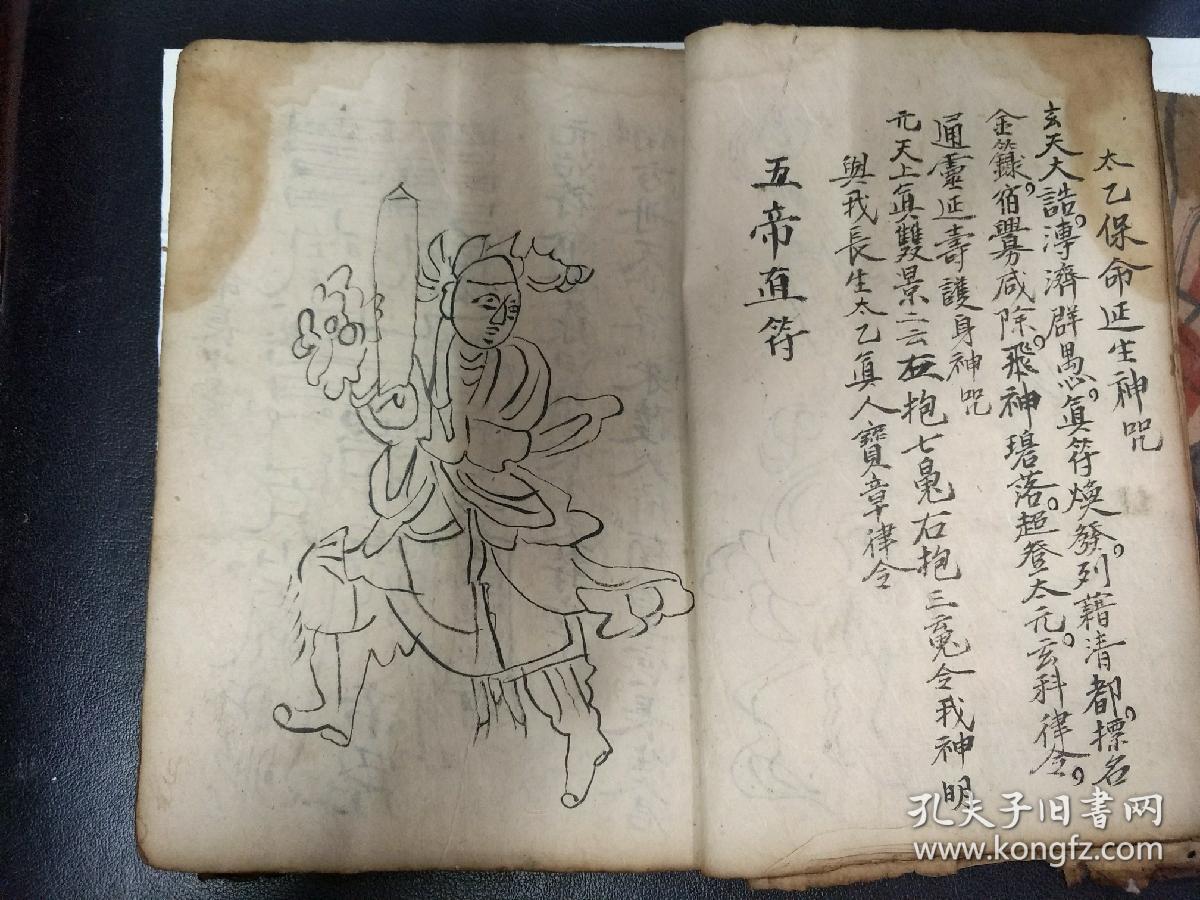 太乙保命延生神咒
玄天大誥。溥濟群愚。眞符煥發。列藉清都。摽名
金籙。宿釁咸除。飛神碧落。超登太元。玄科律令。
通靈延壽護身神咒
元天上眞雙景二云 抱七魄右抱三魂令我神明
與我長生太乙眞人寶章律令
五帝直符
孔夫子旧书网
www.kongfz.com